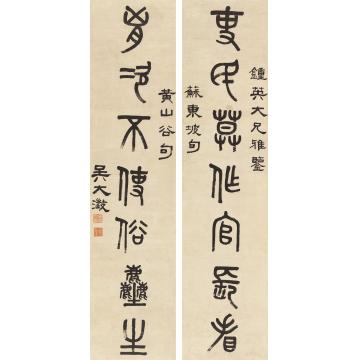 鍾英大兄雅鑒
吏民莫作官長看
蘇東坡句
黃山谷句
胸次不使俗塵生
吳大澂